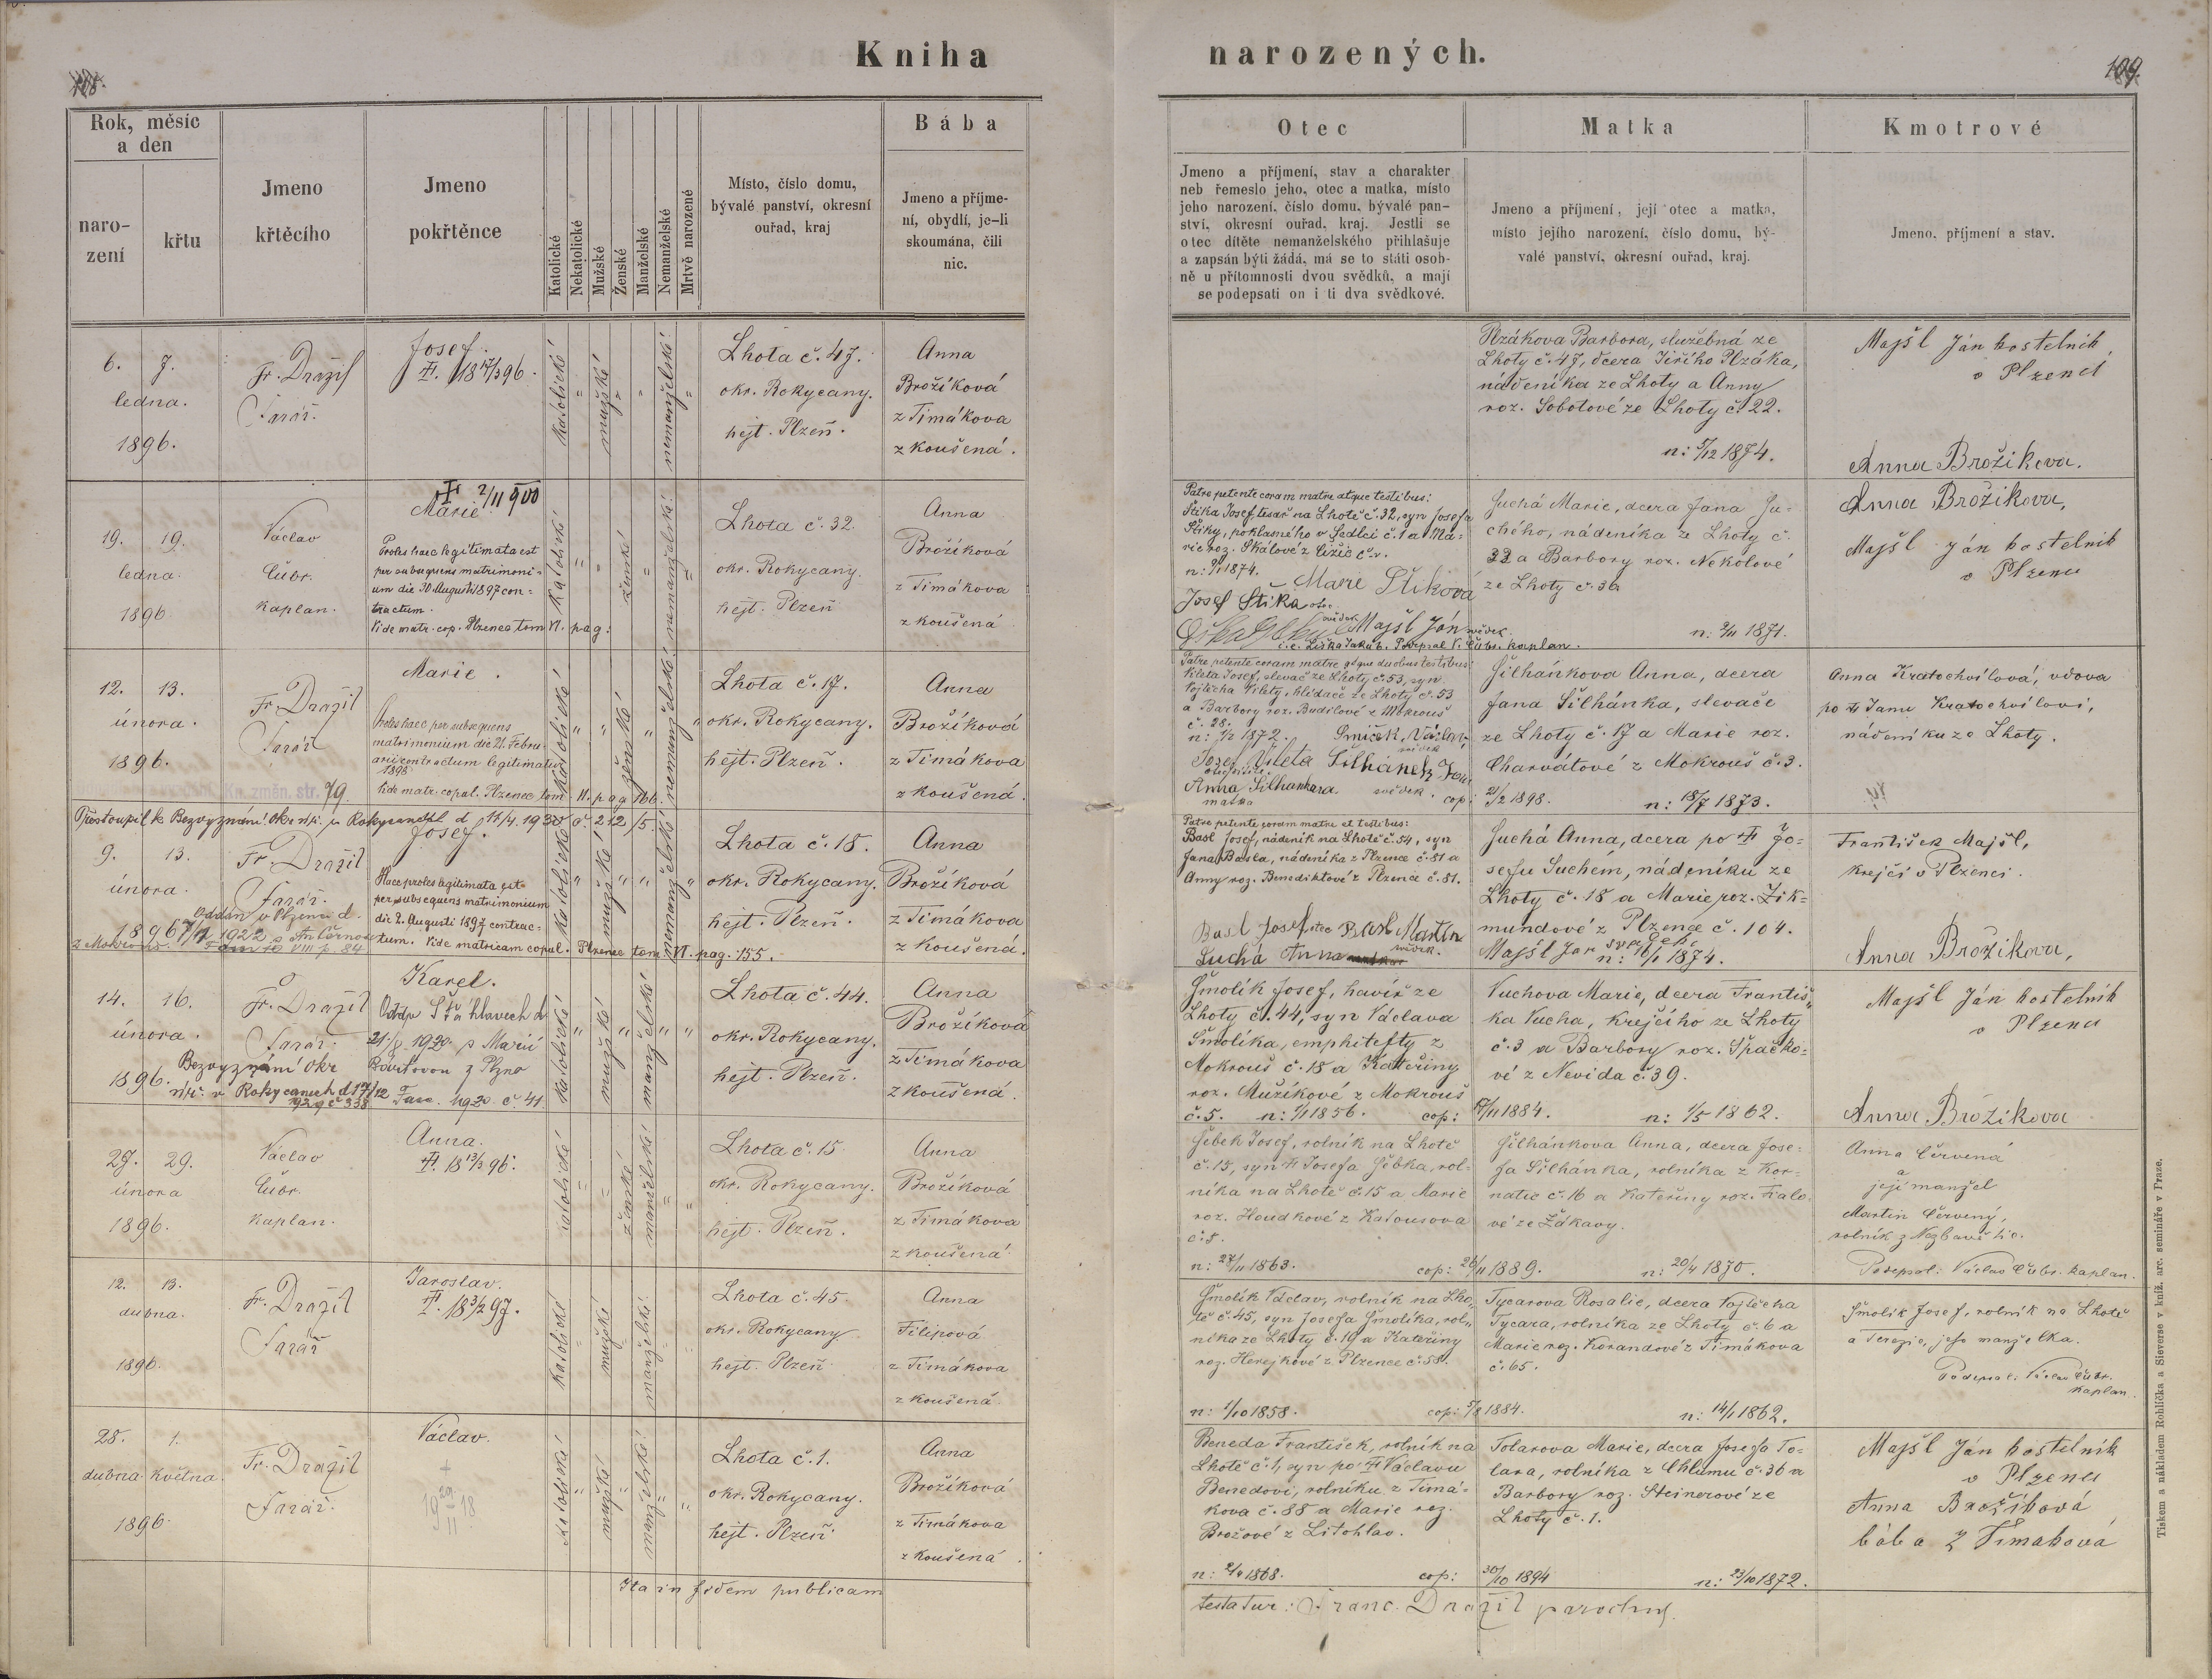 Kniha narozených.
109.
Rok, měsíc
a den
naro-
zení
křtu
Jmeno
křtěcího
Jmeno
pokřtěnce
Katolické
Nekatolické
Mužské
Ženské
Manželské
Nemanželské
Mrtvě narozené
Místo, číslo domu,
bývalé panství, okresní
ouřad, kraj
Bába
Jmeno a příjme-
ní, obydlí, je-li
skoumána, čili
nic.
Otec
Jmeno a příjmení, stav a charakter
neb řemeslo jeho, otec a matka, místo
jeho narození, číslo domu, bývalé pan-
ství, okresní ouřad, kraj. Jestli se
otec dítěte nemanželského přihlašuje
a zapsán býti žádá, má se to státi osob-
ně u přítomnosti dvou svědků, a mají
se podepsati on i ti dva svědkové.
Matka
Jmeno a příjmení, její otec a matka,
místo jejího narození, číslo domu, bý-
valé panství, okresní ouřad, kraj.
Kmotrové
Jmeno, příjmení a stav.
6. 7.
ledna.
1896.
Fr. Dražil
Farář.
Josef.
18 17/3 96.
katolické
mužské
nemanželské
Lhota č. 47.
okr. Rokycany.
hejt. Plzeň.
Anna
Brožíková
z Timákova
zkoušená.
Plzákova Barbora, služebná ze
Lhoty č. 47, dcera Jiřího Plzáka,
nádeníka ze Lhoty a Anny
roz. Sobotové ze Lhoty č. 22.
n: 5/12 1874.
Majšl Ján kostelník
v Plzenci
Anna Brožikova.
19. 19.
ledna.
1896
Václav
Čubr.
kaplan.
2/11 900
Marie
Proles haec legitimata est
per subsequens matrimoni-
um die 30 Augusti 1897 con-
tractum.
Vide matr. cop. Plzenec tom VI. pag:
katolické
ženské
nemanželské
Lhota č. 32.
okr. Rokycany.
hejt. Plzeň
Anna
Brožíková
z Timákova
zkoušená
Patre petente coram matre atque testibus:
Štika Josef tesař na Lhotě č. 32, syn Josefa
Štiky, poklasného v Sedlci č. 1 a Ma-
rie roz. Skálové z
1874.
Marie Štiková
Josef Štika otec
Majšl Ján svědek
i.e. Liška Jakub. Podepsal V. Čubr. kaplan.
Suchá Marie, dcera Jana Su-
chého, nádeníka ze Lhoty č.
32 a Barbory roz. Nekolové
ze Lhoty č. 36
n: 2/11 1871.
Anna Brožikova,
Majšl Ján kostelník
v Plzenci
12. 13.
února.
1896.
Fr. Dražil
Farář
Marie.
Proles haec per subsequens
matrimonium die 21. Febru-
arii contractum legitimatur
1898
Vide matr. copul. Plzenec tom. VI. pag 166.
Kn. změn. str. 79.
katolické
ženské
nemanželské
Lhota č. 17.
okr. Rokycany.
hejt. Plzeň.
Anna
Brožíková
z Timákova
zkoušená.
Patre petente coram matre atque duobus testibus:
Vileta Josef, slevač ze Lhoty č. 53, syn
Vojtěcha Vilety, hlídače ze Lhoty č. 53
a Barbory roz. Budilové z Mokrouš
č. 28.
n: 1/2 1872.
Josef Vileta Šilhánek Jan
svědek
Anna Šilhankova
matka
Šilhánkova Anna, dcera
Jana Šilhánka, slevače
ze Lhoty č. 17 a Marie roz.
Charvátové z Mokrouš č. 3.
cop: 21/2 1898.
n: 18/7 1873.
Anna Kratochvílová, vdova
po Janu Kratochvílovi,
nádeníku ze Lhoty.
Přestoupil k Bezvyznání
9. 13.
února.
1896
Fr. Dražil
Farář.
Josef.
Haec proles legitimata est
per subsequens matrimonium
die 2. Augusti 1897 contrac-
tum. Vide matricam copul. Plzenec tom VI. pag. 155.
katolické
mužské
nemanželské
Lhota č. 18.
okr. Rokycany.
hejt. Plzeň.
Anna
Brožíková
z Timákova
zkoušená.
Patre petente coram matre et testibus:
Basl Josef, nádeník na Lhotě č. 54, syn
Jana Basla, nádeníka z Plzence č. 81 a
Anny roz. Benediktové z Plzence č. 81.
Basl Josef otec Basl Martin
svědek.
Suchá Anna
Suchá Anna, dcera po Jo-
sefu Suchém, nádeníku ze
Lhoty č. 18 a Marie roz. Zik-
mundové z Plzence č. 104.
Majšl Jan
n: 16/1 1874.
František Majšl,
krejčí v Plzenci.
Anna Brožikova,
14. 16.
února.
1896.
Fr. Dražil
Farář.
Karel.
Bezvyznání Okr
v Rokycanech
katolické
mužské
manželské
Lhota č. 44.
okr. Rokycany.
hejt. Plzeň.
Anna
Brožíková
z Timákova
zkoušená.
Šmolík Josef, havíř ze
Lhoty č. 44, syn Václava
Šmolíka, emphitefty z
Mokrouš č. 18 a Kateřiny
roz. Mužíkové z Mokrouš
č. 5. n: 1/1 1856.
cop: 17/11 1884.
Vuchova Marie, dcera Františ-
ka Vucha, krejčího ze Lhoty
č. 3 a Barbory roz. Špačko-
vé z Nevida č. 39.
n: 1/5 1862.
Majšl Ján kostelník
v Plzenci
Anna Brožikova
27. 29.
února
1896.
Václav
Čubr.
kaplan.
Anna.
18 13/3 96.
katolické
ženské
manželské
Lhota č. 15
okr. Rokycany.
hejt. Plzeň.
Anna
Brožíková
z Timákova
zkoušená.
Šebek Josef, rolník na Lhotě
č. 15, syn Josefa Šebka, rol-
níka na Lhotě č. 15 a Marie
roz. Houdkové z Katousova
č. 8.
n: 27/11 1863.
cop: 26/11 1889.
Šilhánkova Anna, dcera Jose-
fa Šilhánka, rolníka z Kor-
natic č. 16 a Kateřiny roz.
vé ze Žákavy.
n: 20/4 1870.
Anna Červená
a
její manžel
Martin Červený,
rolník z
Podepsal: Václav Čubr. kaplan.
12. 13.
dubna.
1896.
Fr. Dražil
Farář
Jaroslav.
18 3/2 97.
katolické
mužské
manželské
Lhota č. 45.
okr. Rokycany
hejt. Plzeň
Anna
Filipová
z Timákova
zkoušená.
Šmolík Václav, rolník na Lho-
tě č. 45, syn Josefa Šmolíka, rol-
níka ze Lhoty č. 10 a Kateřiny
roz. Herejkové z Plzence č. 58.
n: 1/10 1858.
cop: 5/8 1884.
Tycarova Rosalie, dcera Vojtěcha
Tycara, rolníka ze Lhoty č. 6 a
Marie roz. Korandové z Timákova
č. 65.
n: 14/1 1862.
Šmolík Josef, rolník na Lhotě
a Terezie, jeho manželka.
Podepsal: Václav Čubr.
kaplan.
28. 1.
dubna května.
1896
Fr. Dražil
Farář.
Václav.
katolické
mužské
manželské
Lhota č. 1.
okr. Rokycany.
hejt. Plzeň
Anna
Brožíková
z Timákova
zkoušená.
Beneda František, rolník na
Lhotě č. 1, syn po Václavu
Benedovi, rolníku z Timá-
kova č. 88 a Marie roz.
Brožové z Litohlav.
1868.
cop: 30/10 1894
Tolarova Marie, dcera Josefa To-
lara, rolníka z Chlumu č. 36 a
Barbory roz. Steinerové ze
Lhoty č. 1.
n: 23/10 1872.
Majšl Ján kostelník
v Plzenci
Anna Brožíková
bába z Timakova
Ita in fidem publicam
testatur: Franc. Dražil parochus.
Tiskem a nákladem Rohlíčka a Sieverse v kníž. arc. semináře v Praze.